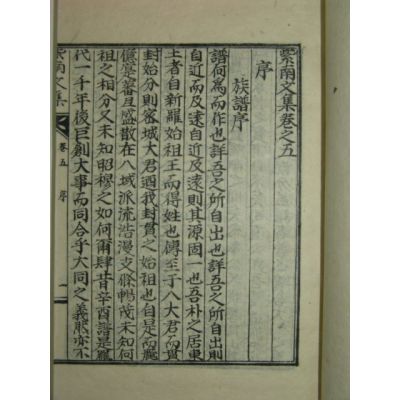 紫南文集卷之五
序
族譜序
譜何爲而作也詳吾之所自出也詳吾之所自出而
自近而及遠自近及遠則其源固一也吾朴之居東
土者自新羅始祖王而得姓也傳至于八大君而貫
封始分則密城大君迺我封貫之始祖也自是而
億寧蕃且盛散在八域派流浩漫支條暢茂未知何
祖之相分又未知昭穆之如何爾肆昔辛酉譜是
代一千年後巨創大事而同合乎大同之義厥亦不
紫南文集
卷五 序
一